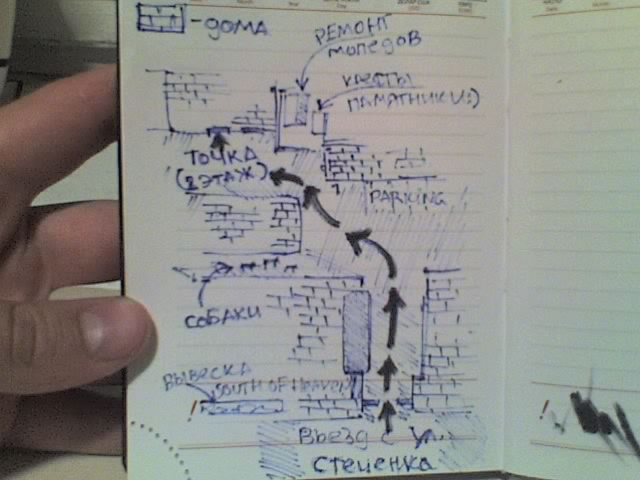 -дома
РЕМОНТ
мопедов
КРЕСТЫ
ПАМЯТНИКИ:)
ТОЧКА
(2 ЭТАЖ)
PARKING
СОБАКИ
ВЫВЕСКА
SOUTH OF HEAVEN
!
Въезд с ул.
Стеценка
!